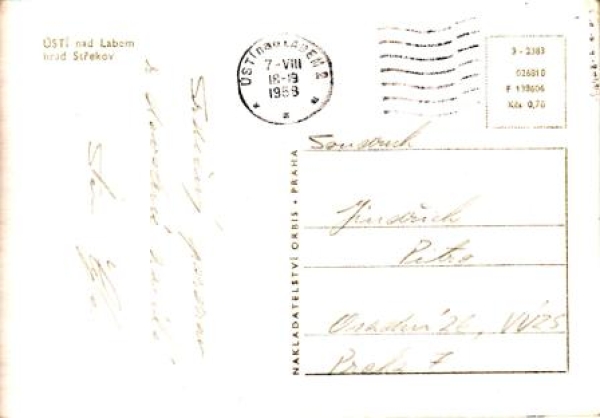 ÚSTÍ nad Labem
hrad Střekov
ÚSTÍ nad LABEM 2
7-VIII
18-19
1958
3 - 2383
026810
F 138606
Kčs 0,70
NAKLADATELSTVÍ ORBIS • PRAHA
Soudruh
Jindřich
Pitro
22, VÚZS
Praha 7
Srdečný pozdrav